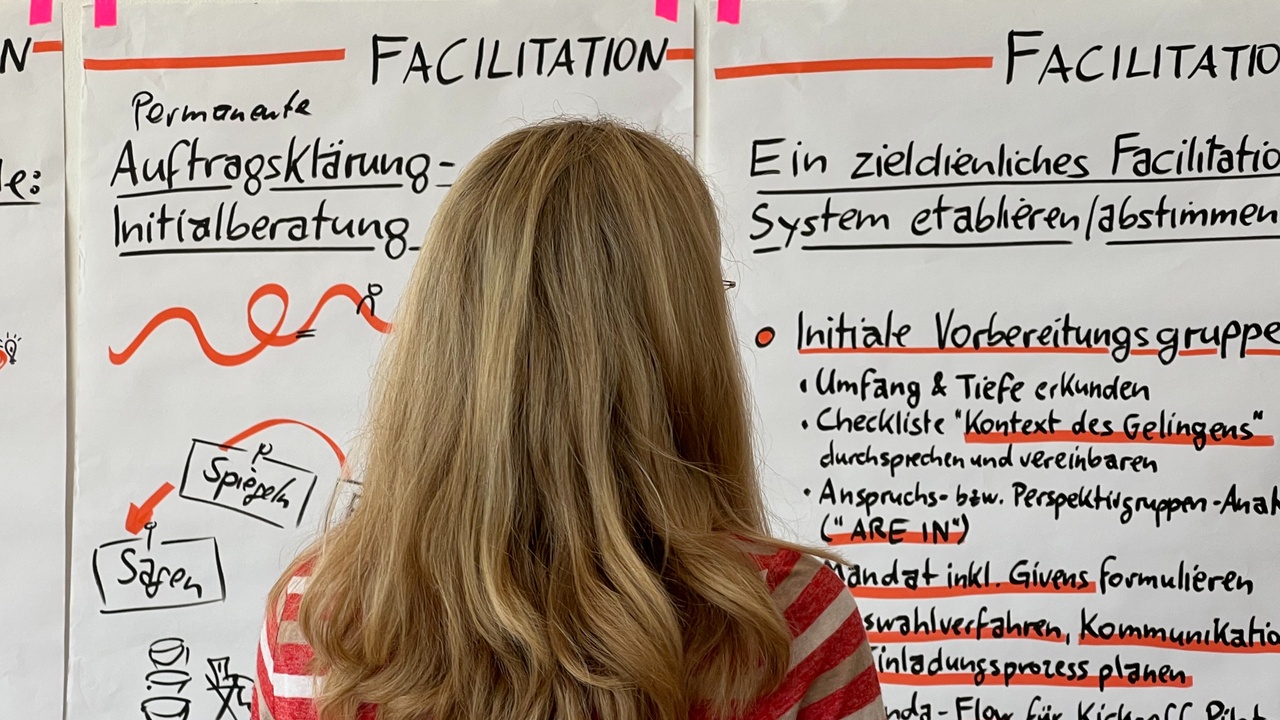 N
le:
FACILITATION
Permanente
Auftragsklärung-
Initialberatung
Spiegeln
Sagen
FACILITATIO
Ein zieldienliches Facilitatio
System etablieren/abstimmen
Initiale Vorbereitungsgruppe
• Umfang & Tiefe erkunden
• Checkliste "Kontext des Gelingens"
durchsprechen und vereinbaren
• Anspruchs- bzw. Perspektivgruppen-Anal
("ARE IN")
Mandat inkl. Givens formulieren
swahlverfahren, Kommunikatio
inladungsprozess planen
nda-Flow für Kick-off Pilot